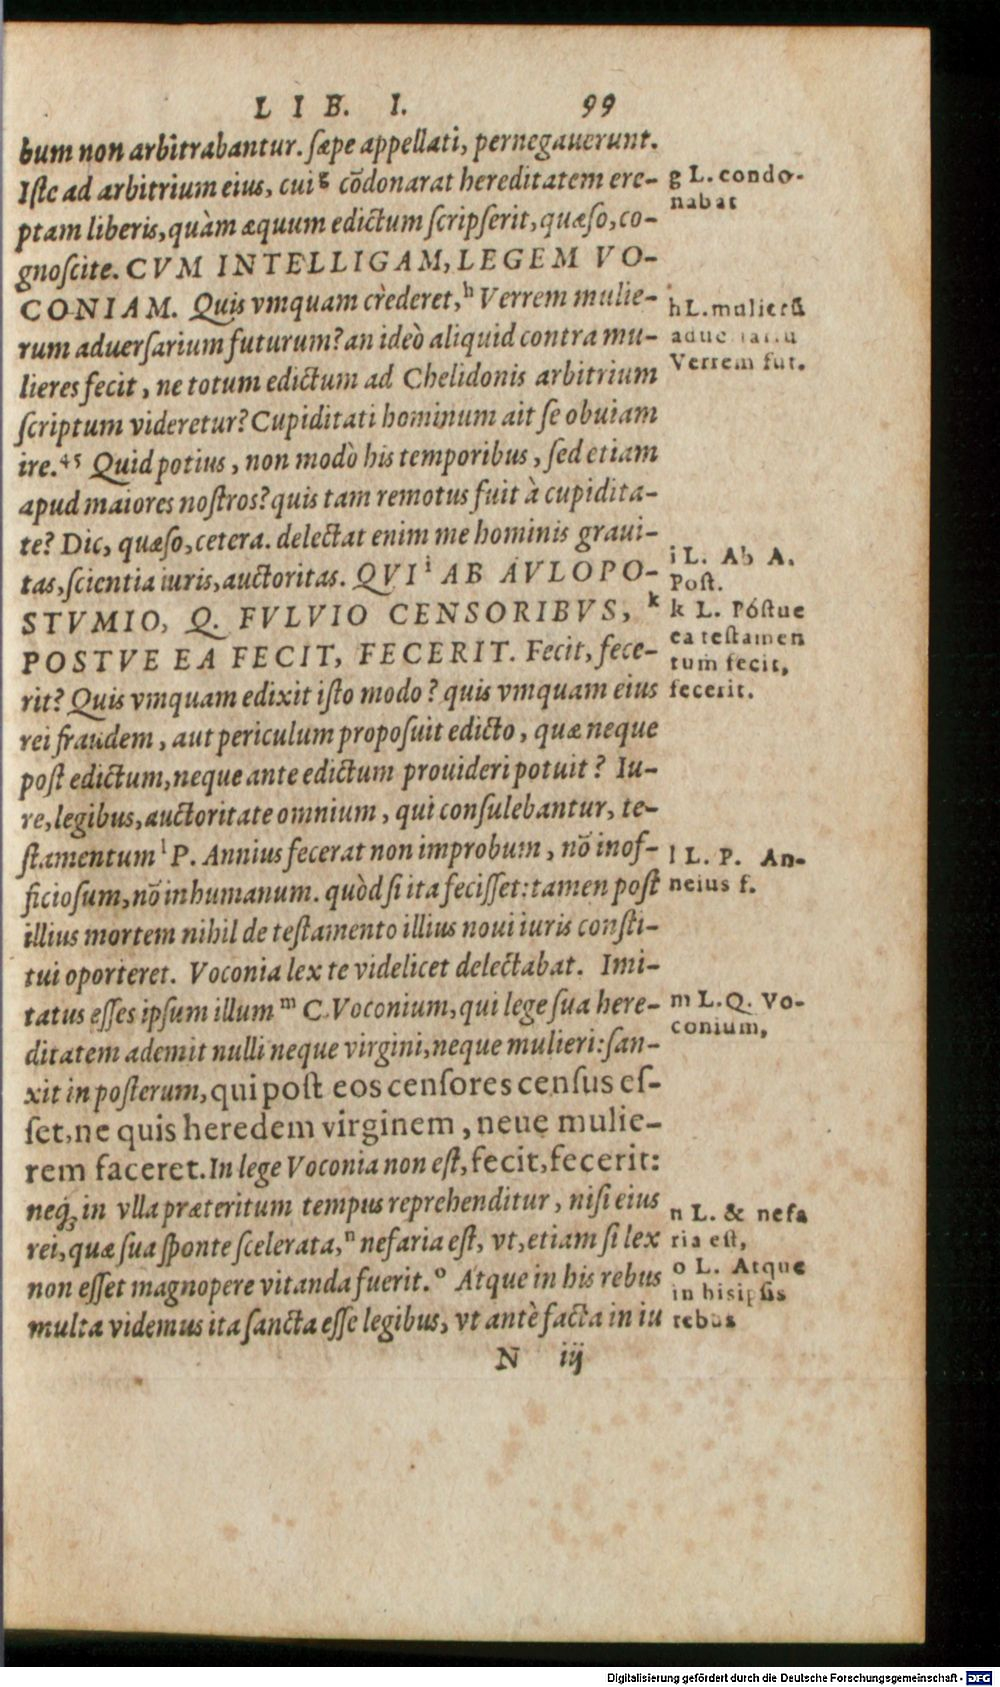 LIB. I. 99
bum non arbitrabantur. sæpe appellati, pernegauerunt.
Iste ad arbitrium eius, cui g cõdonarat hereditatem ere-
ptam liberis, quàm æquum edictum scripserit, quæso, co-
gnoscite. CVM INTELLIGAM, LEGEM VO-
CONIAM. Quis vmquam crederet, h Verrem mulie-
rum aduersarium futurum? an ideò aliquid contra mu-
lieres fecit, ne totum edictum ad Chelidonis arbitrium
scriptum videretur? Cupiditati hominum ait se obuiam
ire. 45 Quid potius, non modò his temporibus, sed etiam
apud maiores nostros? quis tam remotus fuit à cupidita-
te? Dic, quæso, cetera. delectat enim me hominis graui-
tas, scientia iuris, auctoritas. QVI i AB AVLO PO-
STVMIO, Q. FVLVIO CENSORIBVS, k
POSTVE EA FECIT, FECERIT. Fecit, fece-
rit? Quis vmquam edixit isto modo? quis vmquam eius
rei fraudem, aut periculum proposuit edicto, quæ neque
post edictum, neque ante edictum prouideri potuit? Iu-
re, legibus, auctoritate omnium, qui consulebantur, te-
stamentum l P. Annius fecerat non improbum, nõ inof-
ficiosum, nõ inhumanum. quòd si ita fecisset: tamen post
illius mortem nihil de testamento illius noui iuris consti-
tui oporteret. Voconia lex te videlicet delectabat. Imi-
tatus esses ipsum illum m C. Voconium, qui lege sua here-
ditatem ademit nulli neque virgini, neque mulieri: san-
xit in posterum, qui post eos censores census es-
set, ne quis heredem virginem, neue mulie-
rem faceret. In lege Voconia non est, fecit, fecerit:
neq; in vlla præteritum tempus reprehenditur, nisi eius
rei, quæ sua sponte scelerata, n nefaria est, vt, etiam si lex
non esset magnopere vitanda fuerit. o Atque in his rebus
multa videmus ita sancta esse legibus, vt antè facta in iu
N iij
g L. condo-
nabat
h L. mulierũ
Verrem fut.
i L. Ab A.
Post.
k L. Póstue
ea testamen
tum fecit,
fecerit.
l L. P. An-
neius f.
m L. Q. Vo-
conium,
n L. & nefa
ria est,
o L. Atque
in hisipsis
rebus
Digitalisierung gefördert durch die Deutsche Forschungsgemeinschaft - DFG